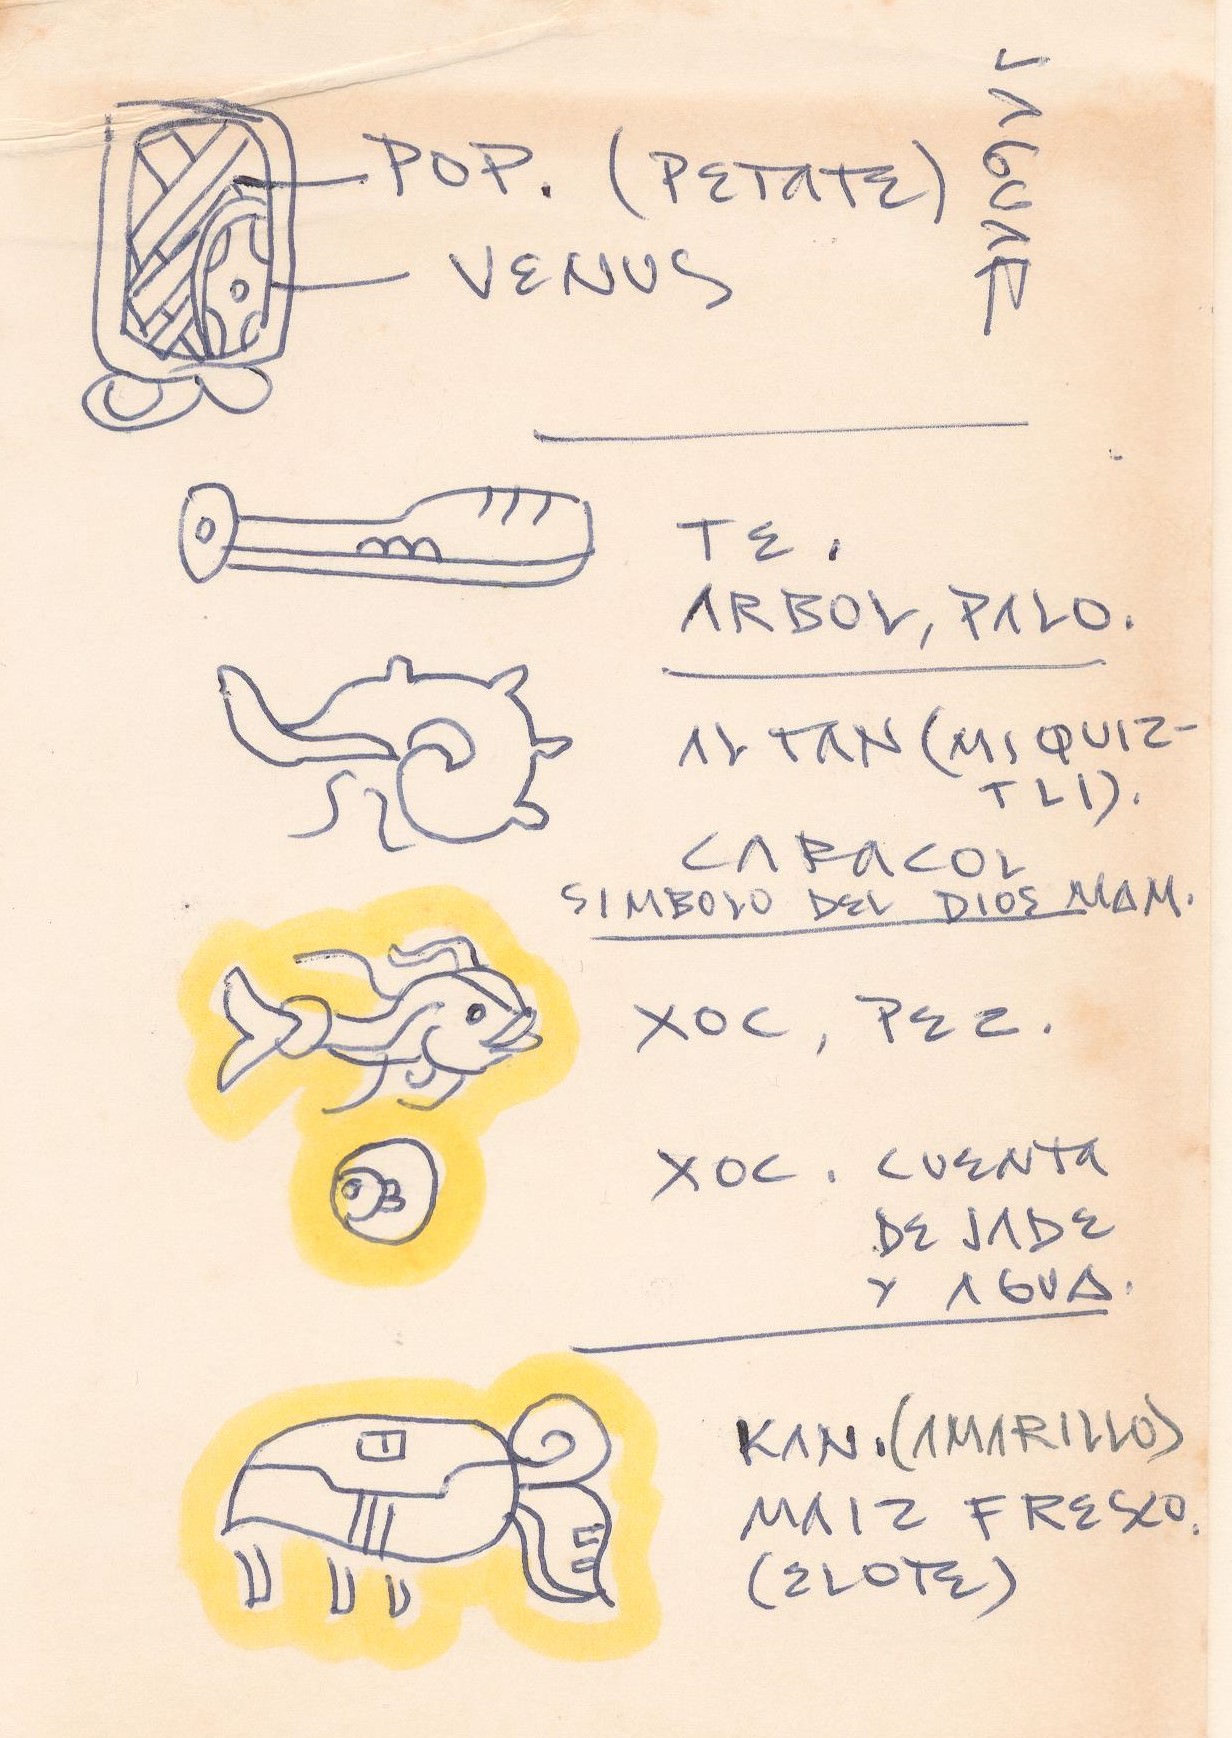 POP. (PETATE)
VENUS
TE.
ARBOL, PALO.
AL TAN (MIQUIZ-
TLI).
CARACOL
SIMBOLO DEL DIOS MAM.
XOC, PEZ.
XOC. CUENTA
DE JADE
Y AGUA.
KAN. (AMARILLO)
MAIZ FRESCO.
(ELOTE)